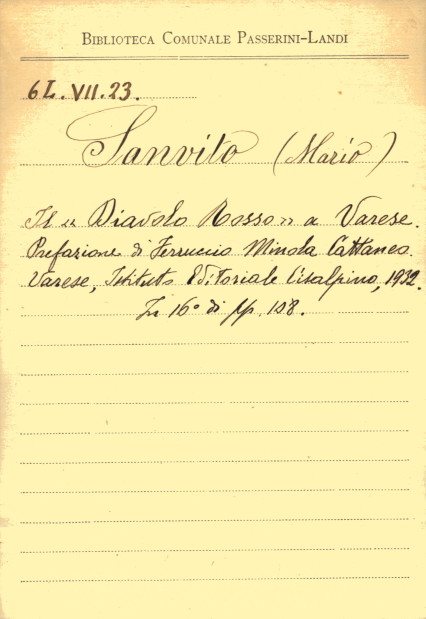 BIBLIOTECA COMUNALE PASSERINI-LANDI
6L.VII.23.
Sanvito (Mario)
Il « Diavolo Rosso » a Varese.
Prefazione di Ferruccio Minola Cattaneo.
Varese, Istituto Editoriale Cisalpino, 1932.
In 16° di pp. 108.